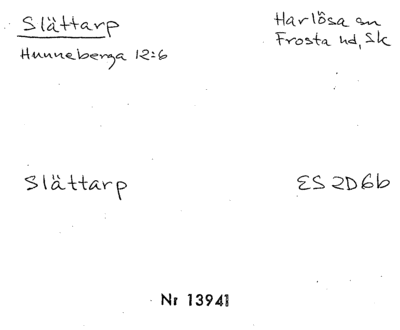 Slättarp
Harlösa sn
Hunneberga 12:6
Frosta hd, Sk
Slättarp
ES 2D6b
Nr 13941